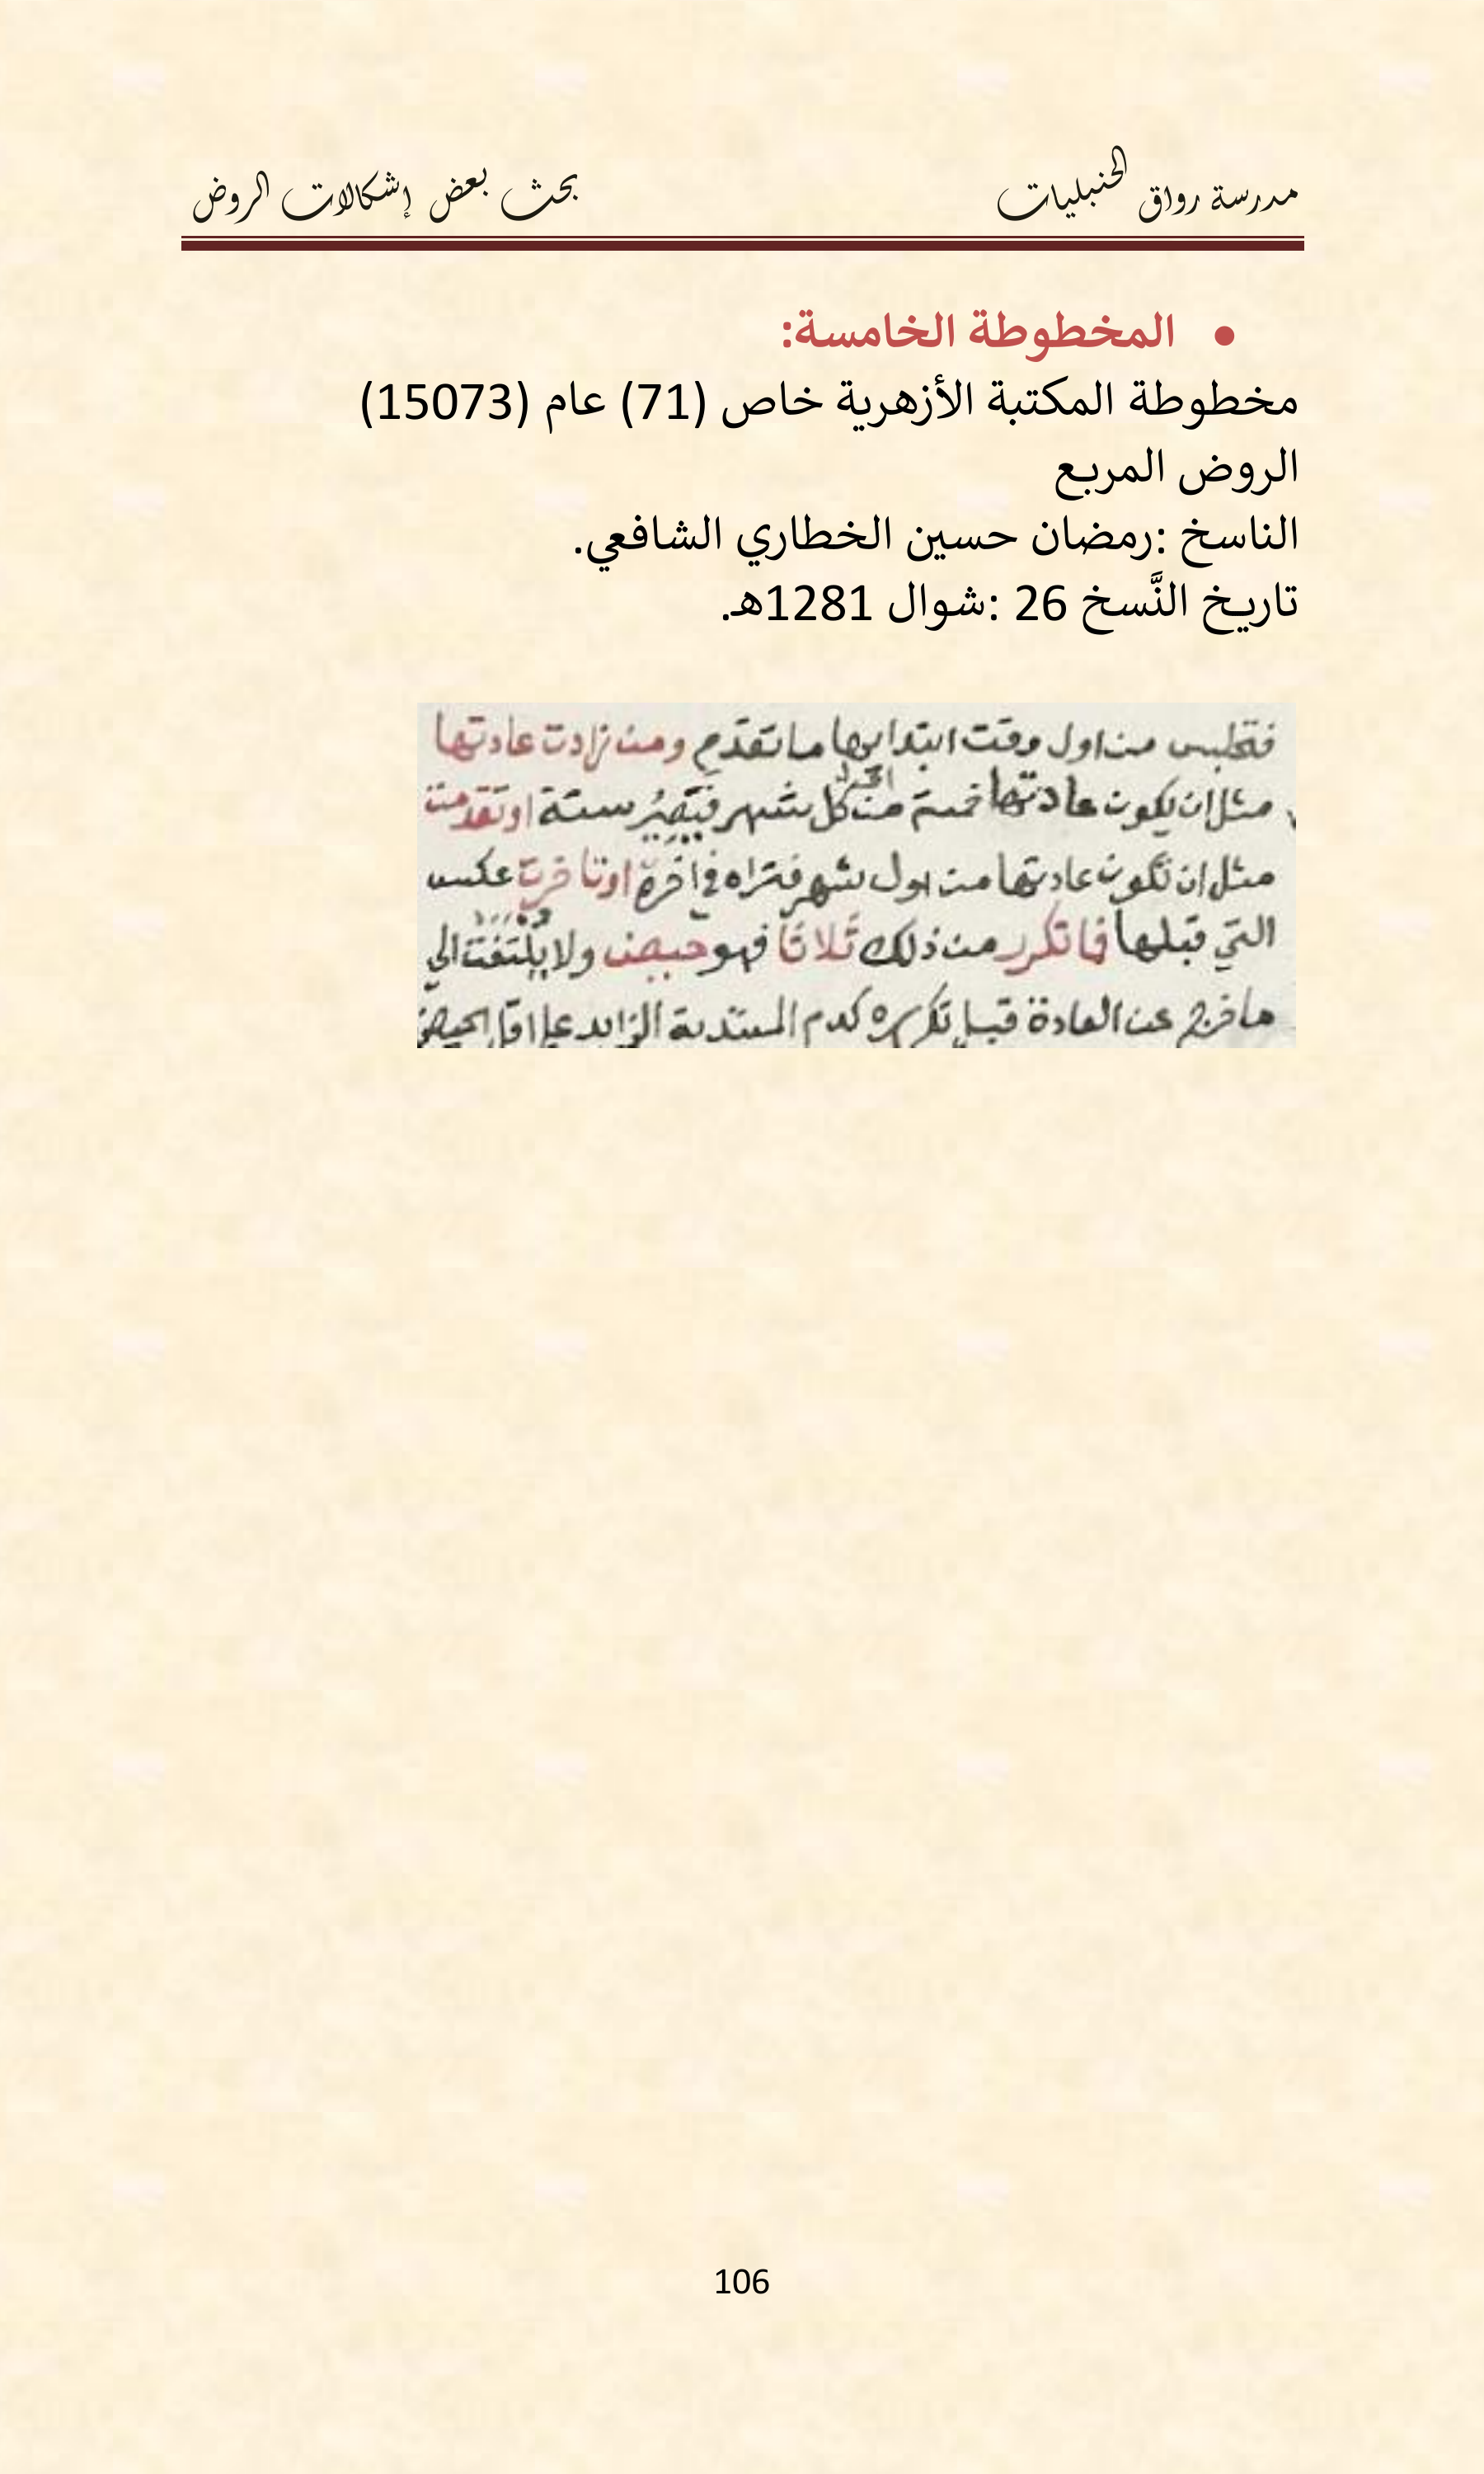 مدرسة رواق الحنبليات
بحث بعض إشكالات الروض
• المخطوطة الخامسة:
مخطوطة المكتبة الأزهرية خاص (71) عام (15073)
الروض المربع
الناسخ :رمضان حسين الخطاري الشافعي.
تاريخ النَّسخ 26 :شوال 1281هـ.
فتجلس من اول وقت ابتدا بها ما تقدم ومن زادت عادتها
مثل ان يكون عادتها خمسة من كل شهر فيصير ستة او تقدمت
مثل ان تكون عادتها من اول شهر فتراه في اخره او تاخرت عكس
التي قبلها فما تكرر من ذلك ثلاثا فهو حيض ولا يلتفت الي
ما خرج عن العادة قبل تكرره كدم المبتدية الزايد علي اقل الحيض
106